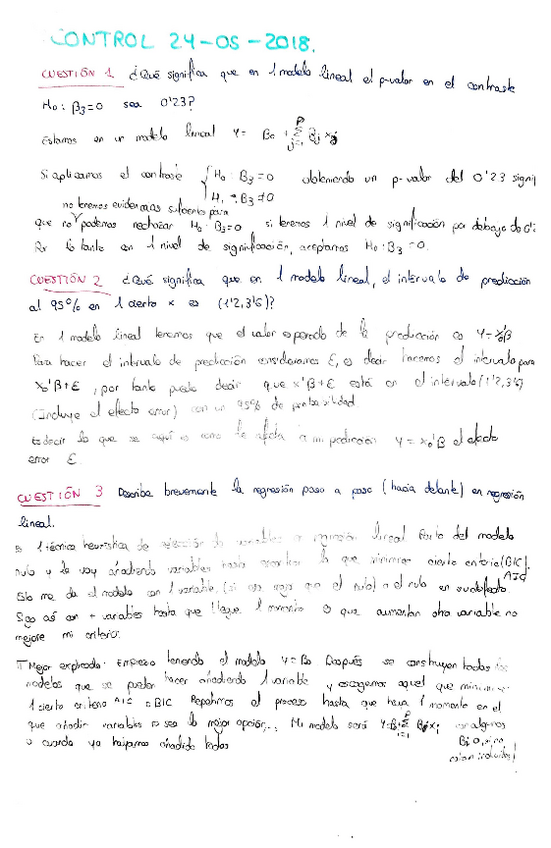 CONTROL 24-05-2018.
CUESTIÓN 1 ¿Qué significa que en 1 modelo lineal el p-valor en el contraste
H0: β3=0 sea 0'23?
Estamos en un modelo lineal Y= β0 + Σ βj xj
Si aplicamos el contraste { H0: β3=0 obteniendo un p-valor del 0'23 signi
H1: β3≠0
no tenemos evidencias suficiente para
que no podemos rechazar H0: β3=0 si tenemos 1 nivel de significación por debajo de 0'
Por lo tanto en 1 nivel de significación, aceptamos H0: β3=0.
CUESTIÓN 2 ¿Qué significa que en 1 modelo lineal, el intervalo de predicción
al 95% en 1 cierto x es (1'2,3'5)?
En 1 modelo lineal tenemos que el valor esperado de la predicción es Y=x0'β
Para hacer el intervalo de predicción consideramos ε, es decir hacemos el intervalo para
x0'β+ε, por tanto puedo decir que x'β+ε está en el intervalo (1'2,3'5)
(Incluye el efecto error) con un 95% de probabilidad
es decir lo que se aquí es como le afecta a mi predicción Y=x0'β el efecto
error ε.
CUESTIÓN 3 Describe brevemente la regresión paso a paso (hacia delante) en regresión
lineal.
Es 1 técnica heurística de selección de variables en regresión lineal Parto del modelo
nulo y le voy añadiendo variables hasta encontrar la que minimice cierto criterio (BIC,
AIC)
Esto me da el modelo con 1 variable (si es mejor que el nulo) o el nulo en su defecto
Sigo así con + variables hasta que llegue 1 momento o que aumentar otra variable no
mejore mi criterio.
Mejor explicado: Empiezo teniendo el modelo Y=β0 Después se construyen todos los
modelos que se pueden hacer añadiendo 1 variable y escogemos aquel que minimice
1 cierto criterio AIC o BIC Repetimos el proceso hasta que haya 1 momento en el
que añadir variables no sea la mejor opción, Mi modelo será Y=β0+Σ βj xj con algunos
o cuando ya hayamos añadido todas βj 0, si no
estan incluidos!